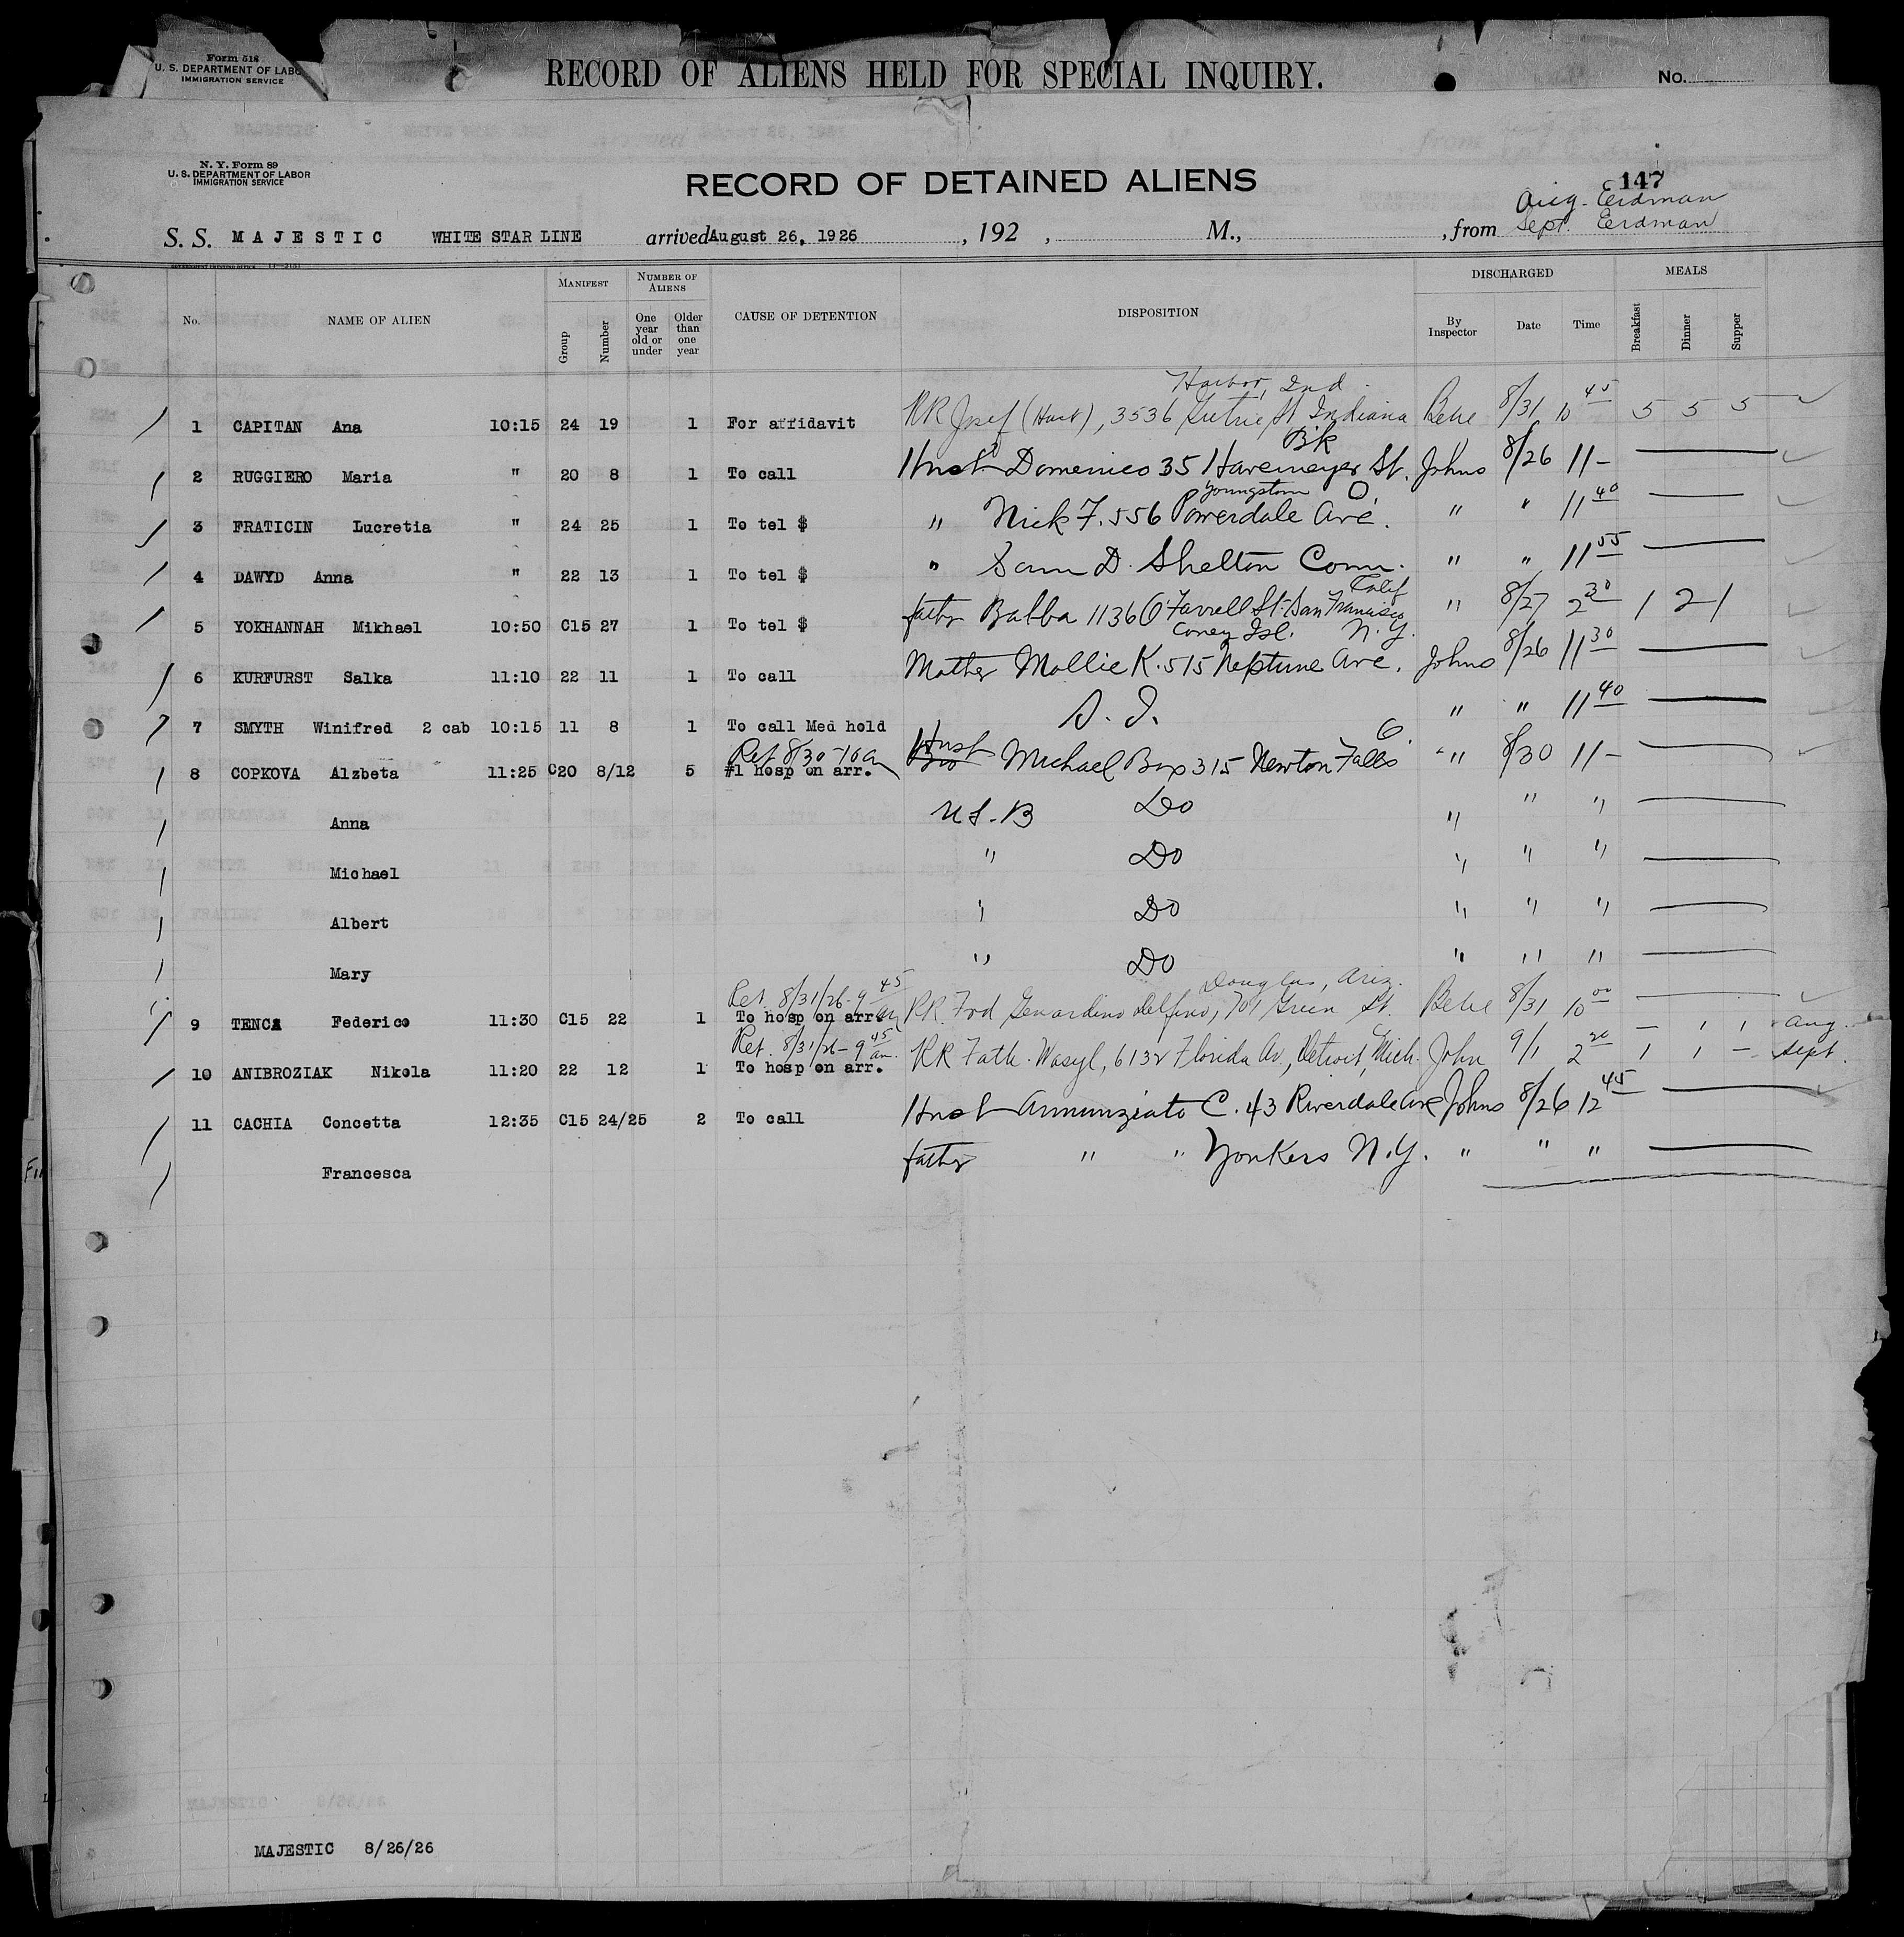 Form 518
U. S. DEPARTMENT OF LABO
IMMIGRATION SERVICE
RECORD OF ALIENS HELD FOR SPECIAL INQUIRY.
No.
N. Y. Form 89
U. S. DEPARTMENT OF LABOR
IMMIGRATION SERVICE
RECORD OF DETAINED ALIENS
147
Aug. Erdman
S. S. MAJESTIC WHITE STAR LINE arrived August 26, 1926 , 192 , M., , from Sept. Erdman
No. NAME OF ALIEN MANIFEST Group Number NUMBER OF ALIENS One year old or under Older than one year CAUSE OF DETENTION DISPOSITION DISCHARGED By Inspector Date Time MEALS Breakfast Dinner Supper
Harbor, Ind.
1 CAPITAN Ana 10:15 24 19 1 For affidavit RR Josef (Husb), 3536 St, Indiana 8/31 10 45 5 5 5
Bk
2 RUGGIERO Maria " 20 8 1 To call Husb Domenico 35 Havemeyer St. Johns 8/26 11-
Youngstown O.
3 FRATICIN Lucretia " 24 25 1 To tel $ " Nick F. 556 Powerdale Ave. " " 11 40
4 DAWYD Anna " 22 13 1 To tel $ " Sam D. Shelton Conn. " " 11 55
Calif
5 YOKHANNAH Mikhael 10:50 C15 27 1 To tel $ father Babba 1136 O'Farrell St. San Francisco " 8/27 2 30 1 2 1
Coney Isl. N.Y.
6 KURFURST Salka 11:10 22 11 1 To call Mother Mollie K. 515 Neptune Ave. Johns 8/26 11 30
7 SMYTH Winifred 2 cab 10:15 11 8 1 To call Med hold S. I. " " 11 40
Ret 8/30 - 10 am Husb O.
8 COPKOVA Alzbeta 11:25 C20 8/12 5 #1 hosp on arr. Bro Michael Box 315 Newton Falls " 8/30 11-
Anna U.S.B Do " " "
Michael " Do " " "
Albert " Do " " "
Mary " Do " " "
Ret. 8/31/26 - 9 45 am Douglas, Ariz.
9 TENCA Federico 11:30 C15 22 1 To hosp on arr. RR Frd Genardino Delfino, 701 Green St. 8/31 10 00
Ret. 8/31/26 - 9 45 am. — 1 1 Aug.
10 ANIBROZIAK Nikola 11:20 22 12 1 To hosp on arr. RR Fath. Wasyl, 6132 Florida Av, Detroit, Mich. John 9/1 2 20 1 1 — Sept.
11 CACHIA Concetta 12:35 C15 24/25 2 To call Husb Annunziato C. 43 Riverdale Ave Johns 8/26 12 45
Francesca father " " Yonkers N.Y. " " "
MAJESTIC 8/26/26